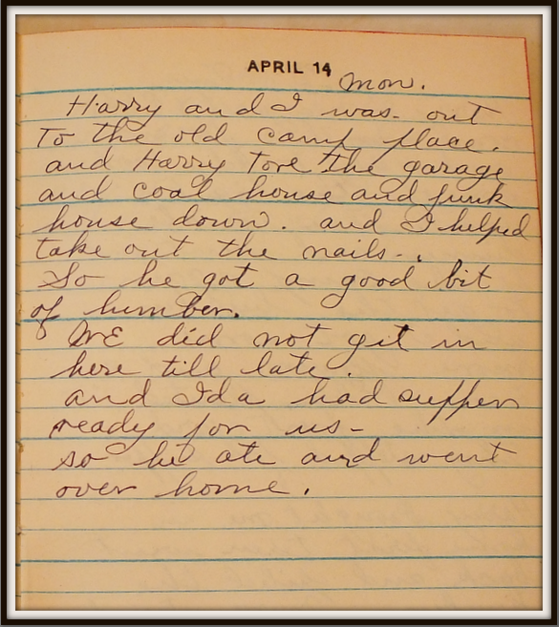 APRIL 14
Mon.
Harry and I was out
To the old camp place.
and Harry Tore the garage
and coal house and junk
house down. and I helped
take out the nails.
So he got a good bit
of lumber.
WE did not get in
here till late.
and Ida had supper
ready for us-
so he ate and went
over home.